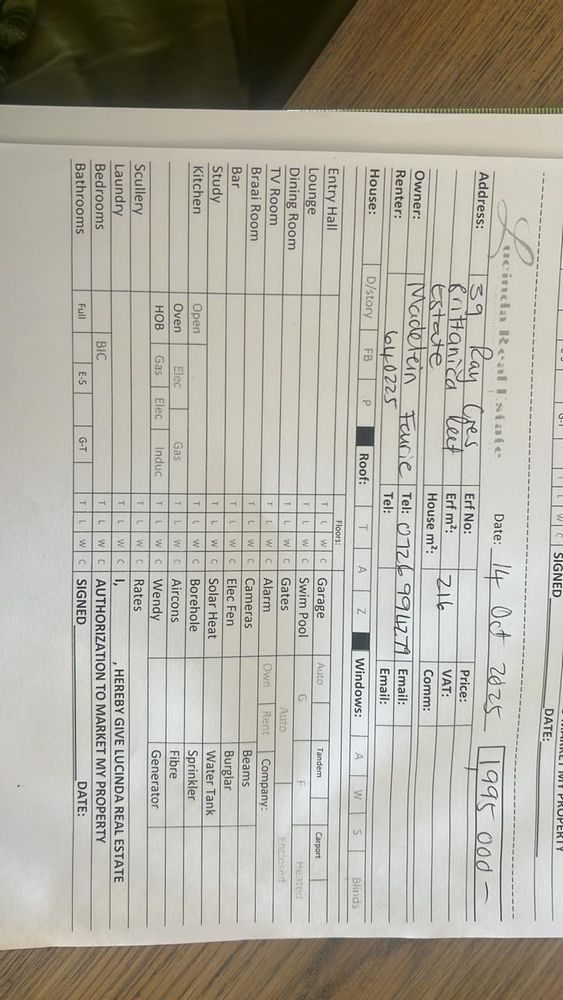 SIGNED DATE:
Lucinda Real Estate Date: 14 Oct 2025 1995 000-
Address: 39 Ray Cres Erf No: Price:
Brittanica Erf m²: 216 VAT:
Estate House m²: Comm:
Owner: Madelein Fourie Tel: Email:
Renter: 640225 Tel: Email:
House: D/story FB P Roof: T A Z Windows: A W S Blinds
Floors:
Entry Hall T L W C Garage Auto Tandem Carport
Lounge T L W C Swim Pool G F Heated
Dining Room T L W C Gates Auto Enclosed
TV Room T L W C Alarm Own Rent Company:
Braai Room T L W C Cameras Beams
Bar T L W C Elec Fen Burglar
Study T L W C Solar Heat Water Tank
Kitchen Open T L W C Borehole Sprinkler
Oven Elec Gas T L W C Aircons Fibre
HOB Gas Elec Induc T L W C Wendy Generator
Scullery T L W C Rates
Laundry T L W C I, , HEREBY GIVE LUCINDA REAL ESTATE
Bedrooms BIC T L W C AUTHORIZATION TO MARKET MY PROPERTY
Bathrooms Full E-S G-T T L W C SIGNED DATE: